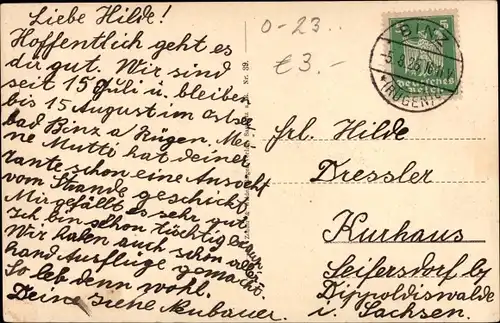 Liebe Hilde!
Hoffentlich geht es
du gut. Wir sind
seit 15 Juli u. bleiben
bis 15 August im Ostsee
bad Binz a/Rügen. Mei
ne Mutti hat deiner
tante schon eine Ansicht
vom Strande geschickt.
Mir gefällt es sehr gut.
Ich bin schon tüchtig braun.
Wir haben auch schon aller
hand Ausflüge gemacht.
So leb denn wohl.
Deine Neubauer.
0-23
€3.-
Nr. 39.
BINZ
5.8.25
(RÜGEN)
5
Deutsches
Reich
Frl. Hilde
Dressler
Kurhaus
Seifersdorf by
Dippoldiswalde
i. Sachsen.